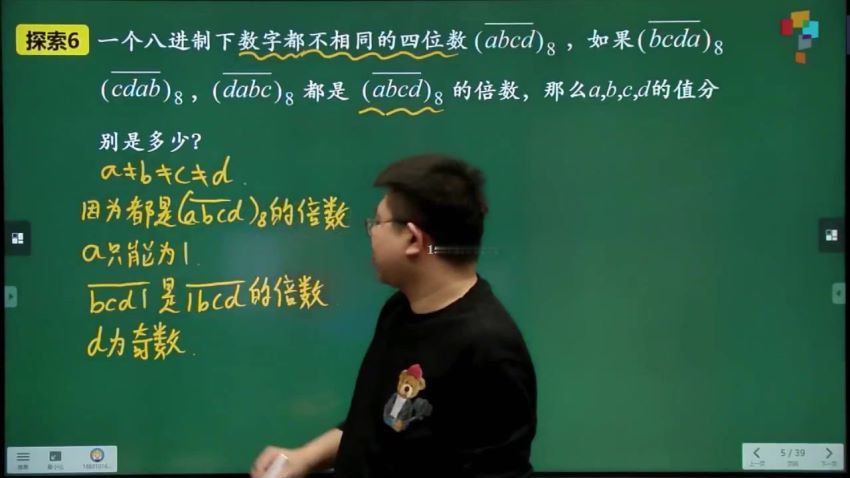 探索6 一个八进制下数字都不相同的四位数(abcd)8，如果(bcda)8
(cdab)8，(dabc)8 都是 (abcd)8 的倍数，那么a,b,c,d的值分
别是多少？
a≠b≠c≠d.
因为都是(abcd)8的倍数
a只能为1.
bcd1是1bcd的倍数.
d为奇数.
5 / 39
上一页 页码 下一页